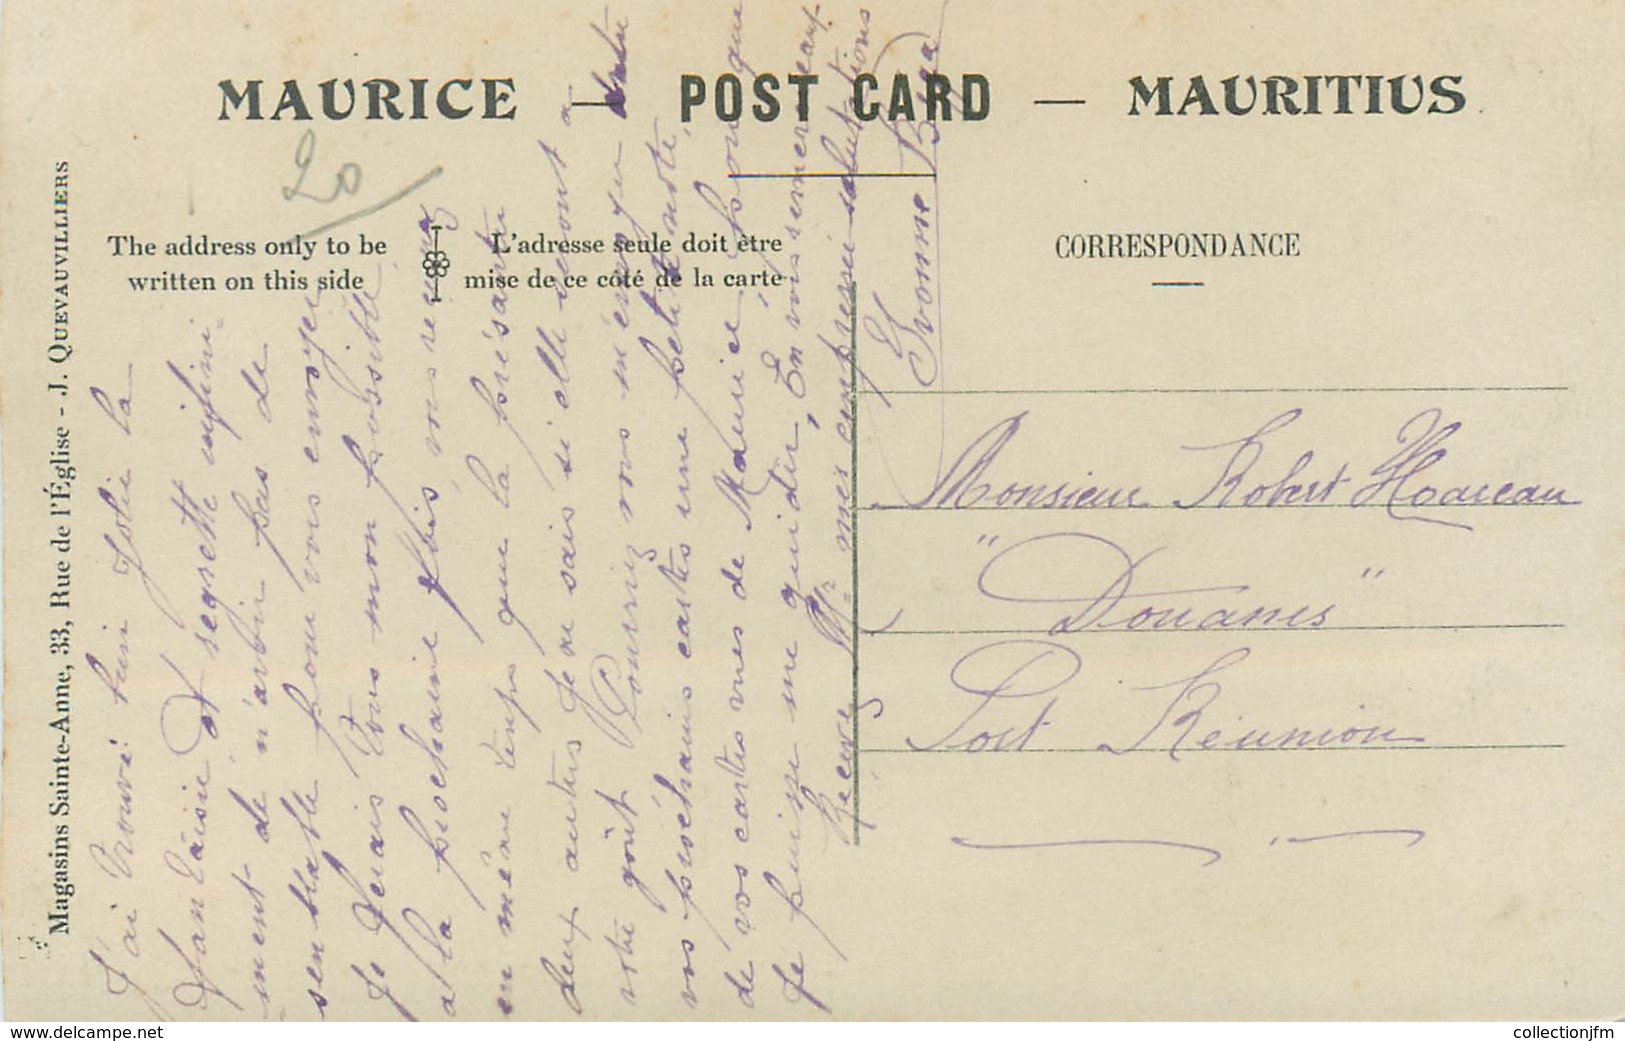 MAURICE — POST CARD — MAURITIUS
20
The address only to be
written on this side
L'adresse seule doit être
mise de ce côté de la carte
CORRESPONDANCE
Magasins Sainte-Anne, 33, Rue de l'Église - J. QUEVAUVILLIERS
J'ai trouvé bien Jolie la
fantaisie, et regrette infini-
ment de n'avoir pas de
semblable pour vous envoyer
Je ferais tous mon possible
a la prochaine fois vous
en même temps que la présente
deux autres Je ne sais si elle seront a
votre goût Pourriez vous m'envoyer
vos prochaines cartes une petite note,
de vos cartes vues de Maurice, pour que
je puisse me guider, En vous remerciant
Recevez Mr mes empressées salutations
Yvonne
Monsieur Robert Hoareau
"Douanes"
Port Réunion
www.delcampe.net
collectionjfm